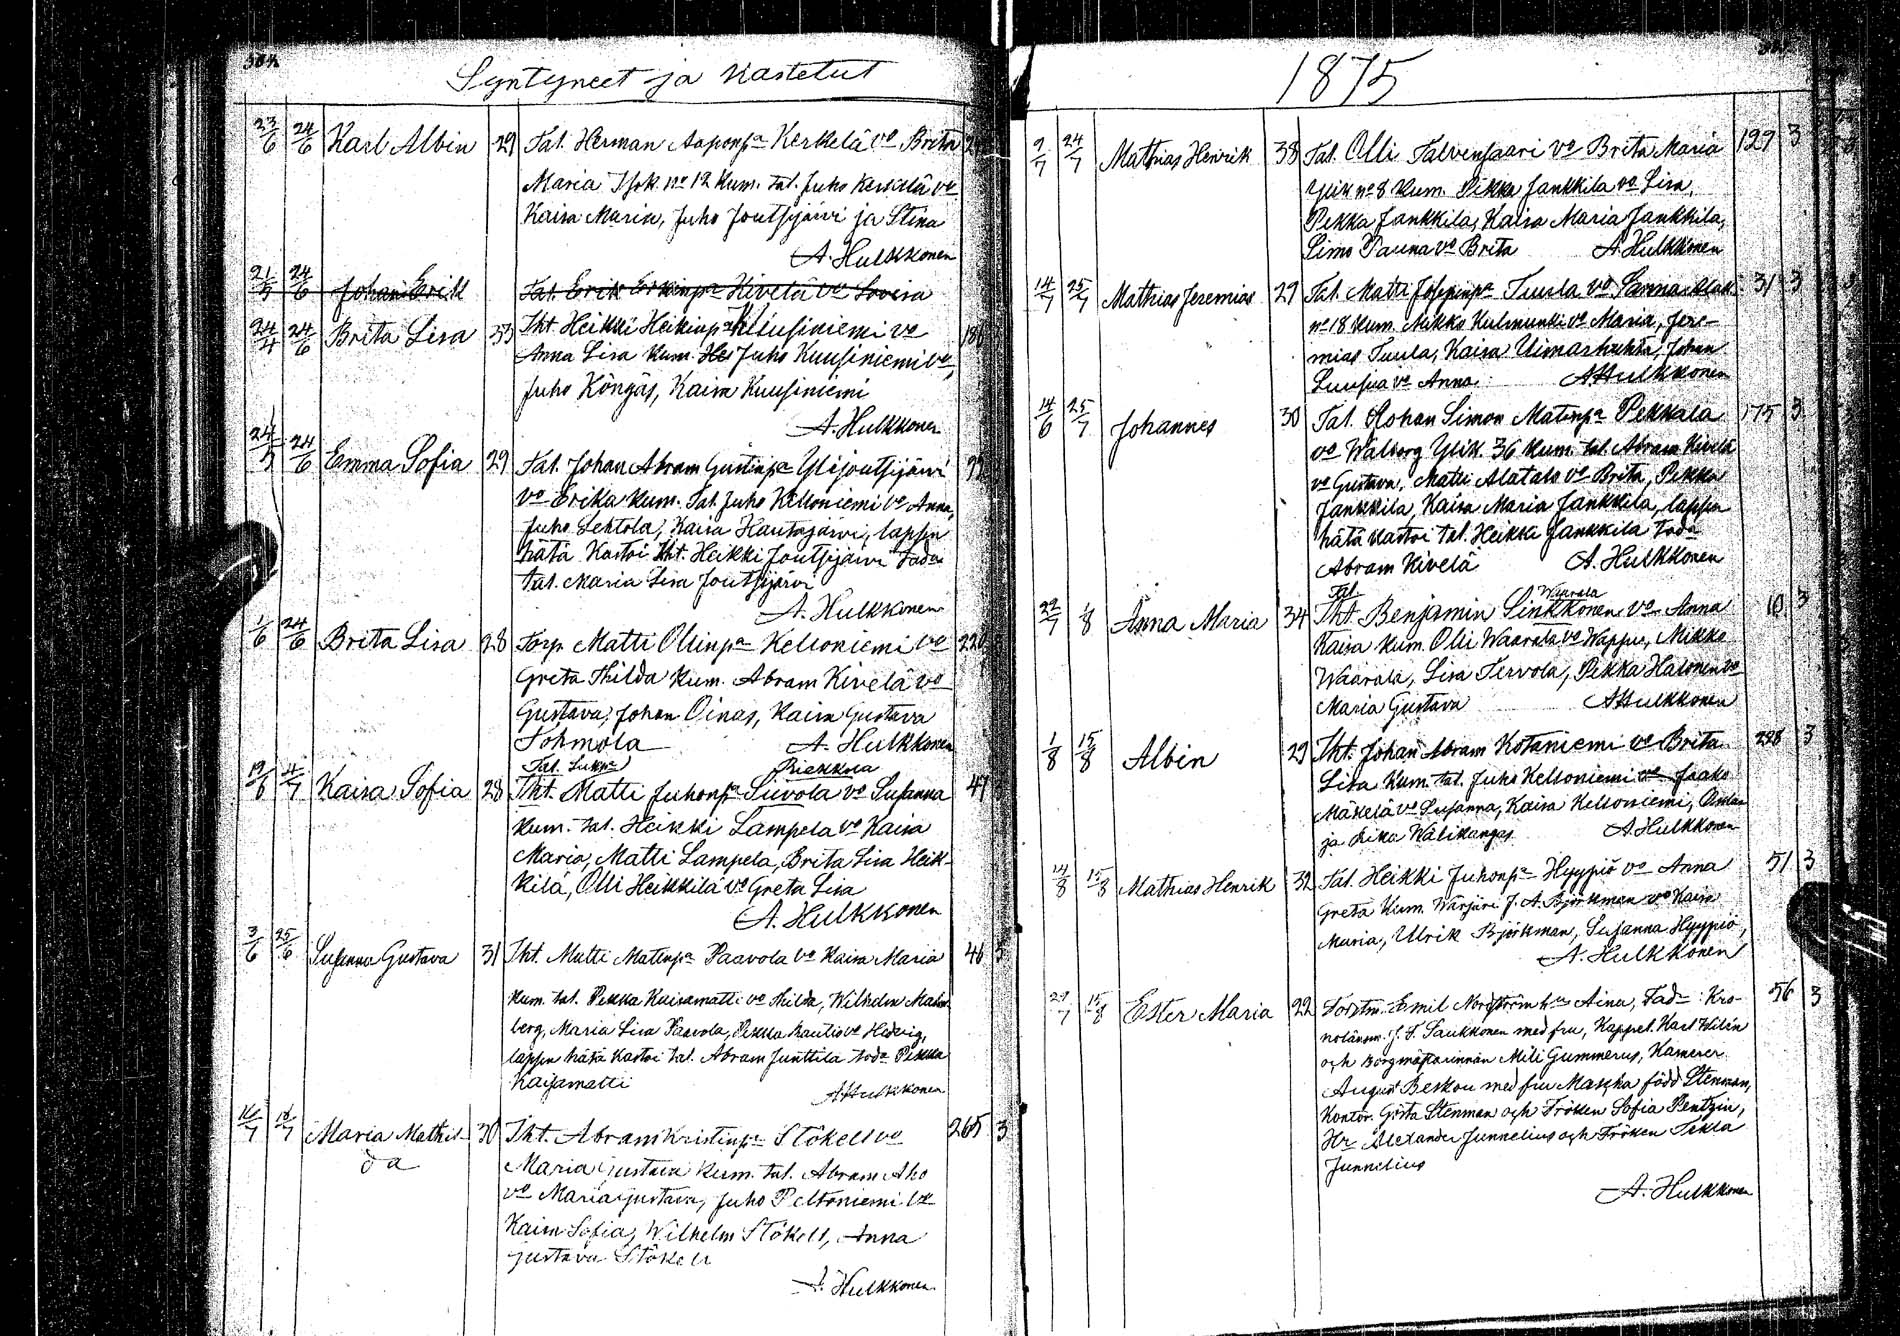 Syntyneet ja Kastetut
23/6 24/6 Karl Albin 29 Tal. Herman Aaponpa Kerkelä vo Brita
Maria Isok no 12 Kum. tal. Juho Kerkelä vo
Kaisa Maria, Juho Joutsijärvi ja Stina
A. Hulkkonen
21/5 24/6 Johan Erik Tal. Erik Erkinpa Kivelä vo Lovisa
24/4 24/6 Brita Lisa 33 Tht. Heikki Heikinpa Kuusiniemi vo 186
Anna Lisa Kum. Hei Juho Kuusiniemi vo,
Juho Köngäs, Kaisa Kuusiniemi
A. Hulkkonen
24/5 24/6 Emma Sofia 29 Tal. Johan Abram Gustinpa Ylijoutsijärvi
vo Erika Kum. Tal. Juho Kelloniemi vo Anna,
Juho Lehtola, Kaisa Hautajärvi, lapsen
hätä Kastoi tht. Heikki Joutsijärvi Toda
tal. Maria Lisa Joutsijärvi
A. Hulkkonen
1/6 24/6 Brita Lisa 28 Torp. Matti Ollinpa Kelloniemi vo 220
Greta Thilda Kum. Abram Kivelä vo
Gustava, Johan Oinas, Kaisa Gustava
Sohmola A. Hulkkonen
Tal. Piekkola
19/6 4/7 Kaisa Sofia 28 Tht. Matti Juhonpa Siivola vo Susanna 47
Kum. tal. Heikki Lampela vo Kaisa
Maria, Matti Lampela, Brita Lisa Heik-
kilä, Olli Heikkilä vo Greta Lisa
A. Hulkkonen
3/6 25/6 Susanna Gustava 31 Tht. Matti Matinpa Paavola vo Kaisa Maria 46 3
Kum. tal. Pekka Kaisamatti vo Hilda, Wilhelm Malm-
berg, Maria Lisa Paavola, Pekka Rautio vo Hedvig,
lapsen hätä Kastoi tal. Abram Junttila toda Pekka
Kaisamatti
A Hulkkonen
16/7 18/7 Maria Mathil- 30 Tht. Abram Kristinpa Stökell vo 265 3
da Maria Gustava Kum. tal. Abram Aho
vo Maria Gustava, Juho Peltoniemi vo
Kaisa Sofia, Wilhelm Stökell, Anna
Gustava Stökell
A. Hulkkonen
1875
9/7 24/7 Mathias Henrik 38 Tal. Olli Talvensaari vo Brita Maria 127 3
Ylik no 8 Kum. Pekka Jankkila vo Lisa,
Pekka Jankkila, Kaisa Maria Jankkila,
Simo Pauna vo Brita A. Hulkkonen
14/7 25/7 Mathias Jeremias 29 Tal. Matti Josepinpa Tuula vo Sanna Alak 31 3
no 18 Kum. Mikko Kulmunki vo Maria, Jere-
mias Tuula, Kaisa Uimarihuhta, Johan
Luusua vo Anna. A Hulkkonen
14/6 25/7 Johannes 30 Tal. Johan Simon Matinpa Pekkala 175 3
vo Walborg Ylik. 36 Kum. tal. Abram Kivelä
vo Gustava, Matti Alatalo vo Brita, Pekka
Jankkila, Kaisa Maria Jankkila, lapsen
hätä kastoi tal. Heikki Jankkila toda
Abram Kivelä A. Hulkkonen
Tal. Waarala
22/7 1/8 Anna Maria 34 Tht. Benjamin Sinkkonen vo Anna 10 3
Kaisa Kum. Olli Waarala vo Wappu, Mikko
Waarala, Lisa Tervola, Pekka Halonen vo
Maria Gustava A Hulkkonen
1/8 15/8 Albin 29 Tht. Johan Abram Kotaniemi vo Brita 228 3
Lisa Kum. tal. Juho Kelloniemi vo Jaako
Mäkelä vo Susanna, Kaisa Kelloniemi,
ja Eika Wälikangas A. Hulkkonen
14/8 15/8 Mathias Henrik 32 Tal. Heikki Juhonpa Hyypiö vo Anna 51 3
Greta Kum. Wärjäri J. A. Björkman vo Kaisa
Maria, Ulrik Björkman, Susanna Hyypiö,
A. Hulkkonen
29/7 15/8 Ester Maria 22 Forstm. Emil Nordström hu Aina, Fadr: Kro- 56 3
nolänsm. J. F. Saukkonen med fru, Kappel. Karl Hilén
och Borgmästarinnan Mili Gummerus, Kamerer
August Beskou med fru Mascha född Stenman,
Kontor. Gösta Stenman och Fröken Sofia Bentzin,
Hr Alexander Junnelius och Fröken Tekla
Junnelius
A. Hulkkonen